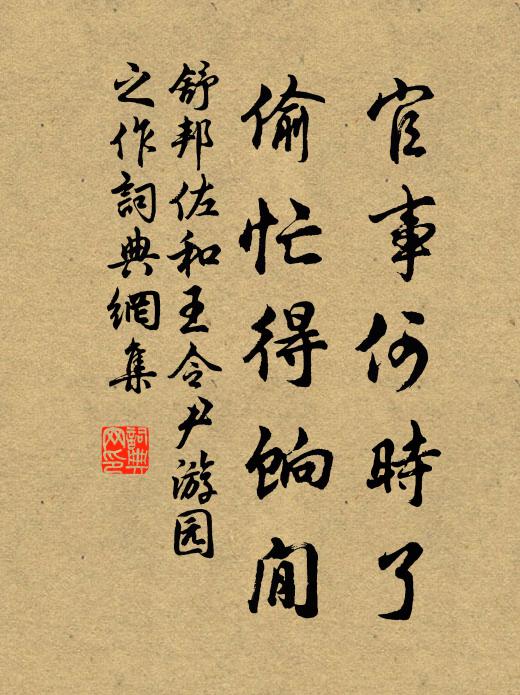 官事何時了
偷忙得餉閒
舒邦佐和王令尹游园
之作詞典網集
詞典網印